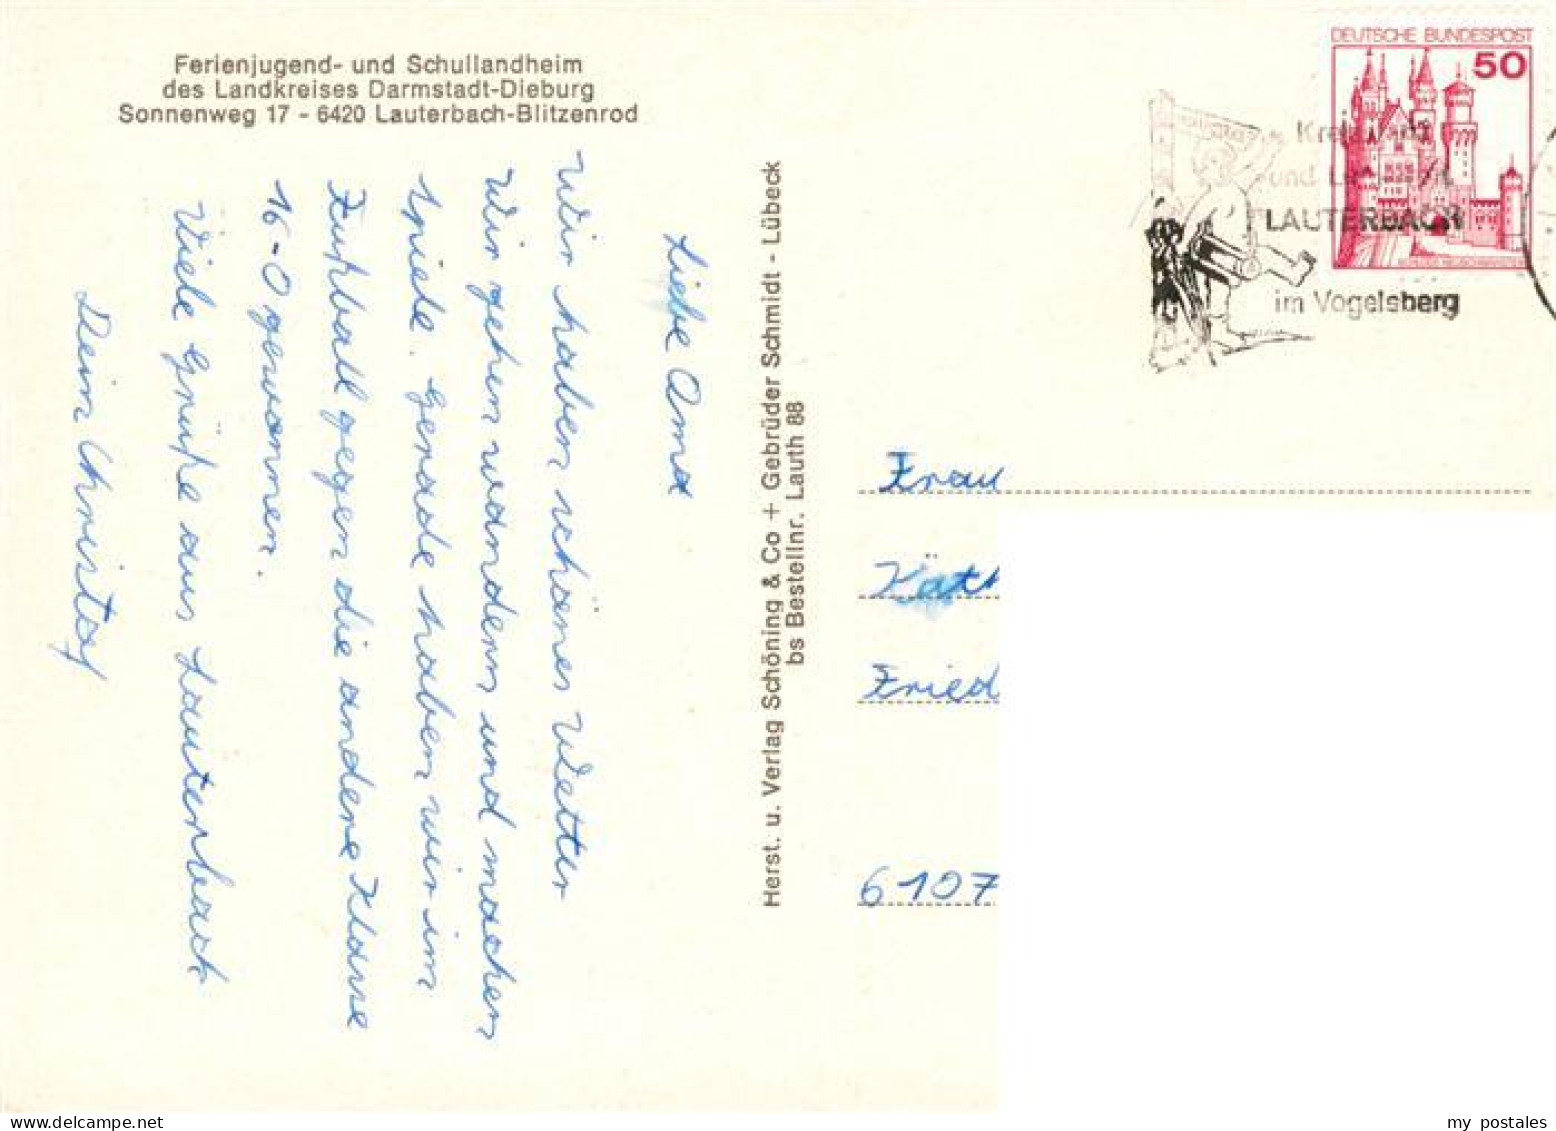 Ferienjugend- und Schullandheim
des Landkreises Darmstadt-Dieburg
Sonnenweg 17 - 6420 Lauterbach-Blitzenrod
Liebe Oma
Wir haben schönes Wetter
Wir gehen wandern und machen
Spiele. Gerade haben wir im
Fußball gegen die andere Klasse
16-0 gewonnen.
Viele Grüße aus Lauterbach
Dein Christof
Herst. u. Verlag Schöning & Co + Gebrüder Schmidt - Lübeck
bs Bestellnr. Lauth 88
DEUTSCHE BUNDESPOST
50
LAUTERBACH
im Vogelsberg
Frau
Käth
Fried
6107
my postales